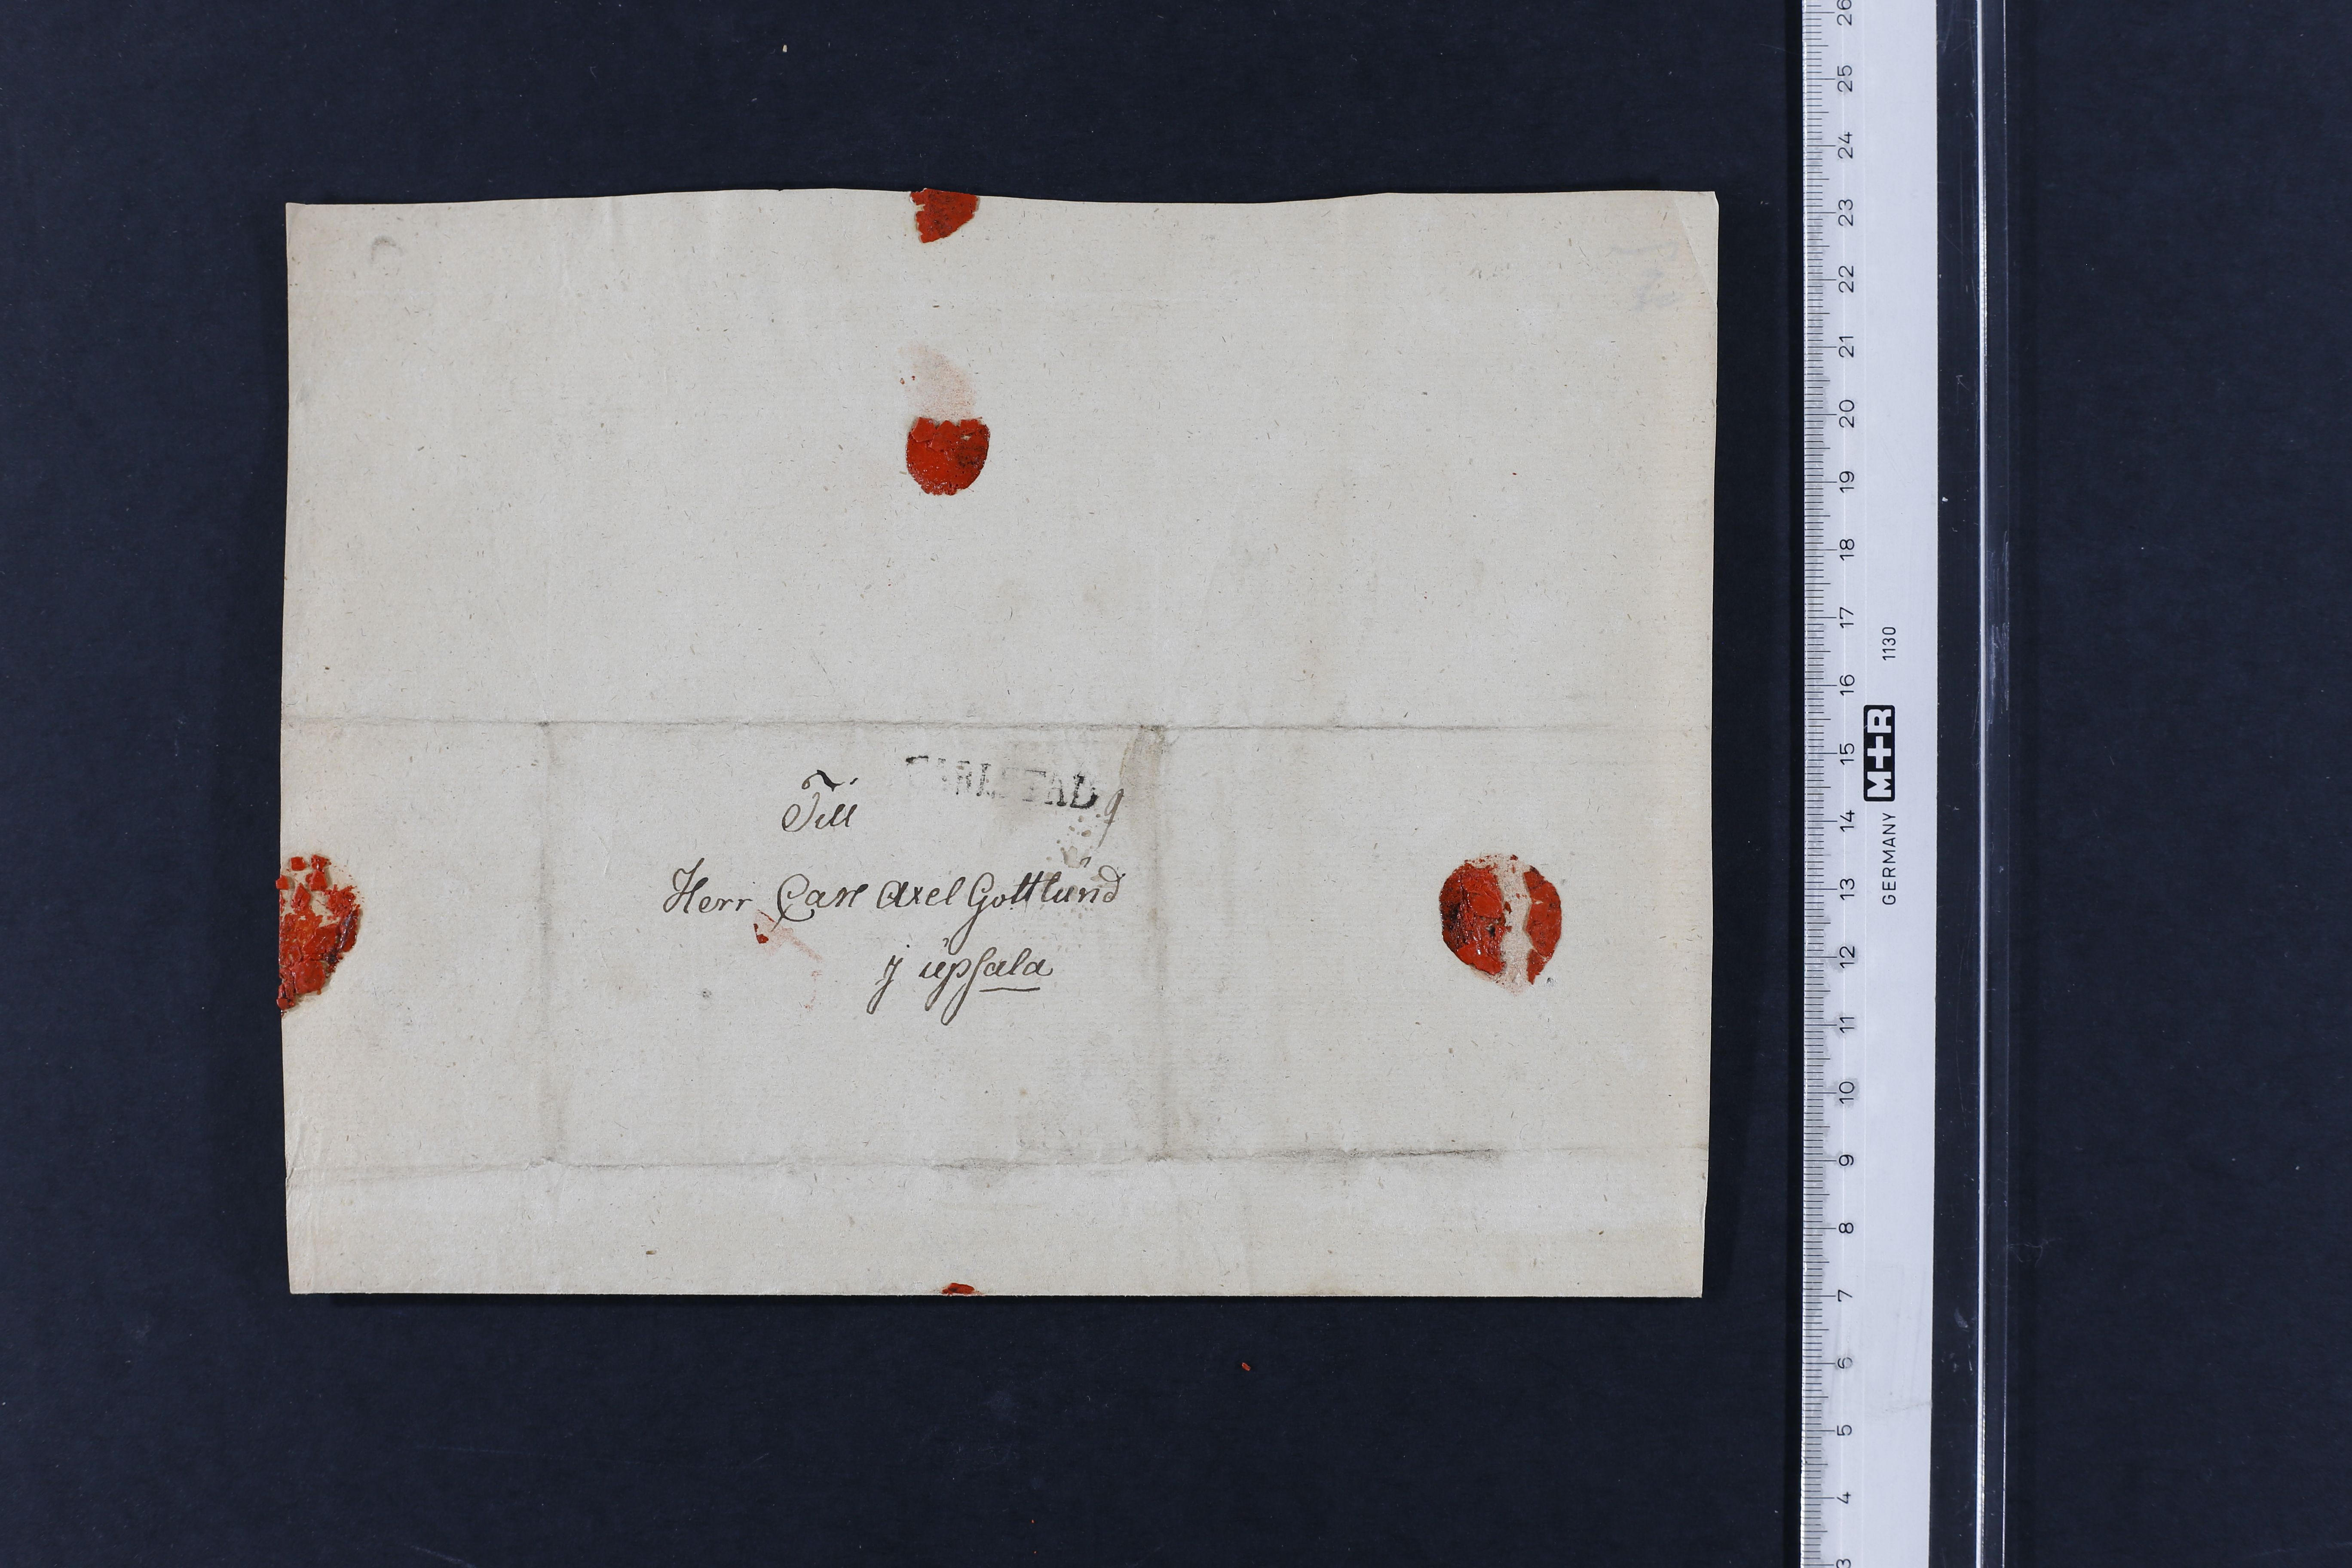 CARLSTAD
Till
Herr Carl Axel Gottlund
j upsala
26
25
24
23
22
21
20
19
18
17
16
15
14
13
12
11
10
9
8
7
6
5
4
3
GERMANY M+R 1130